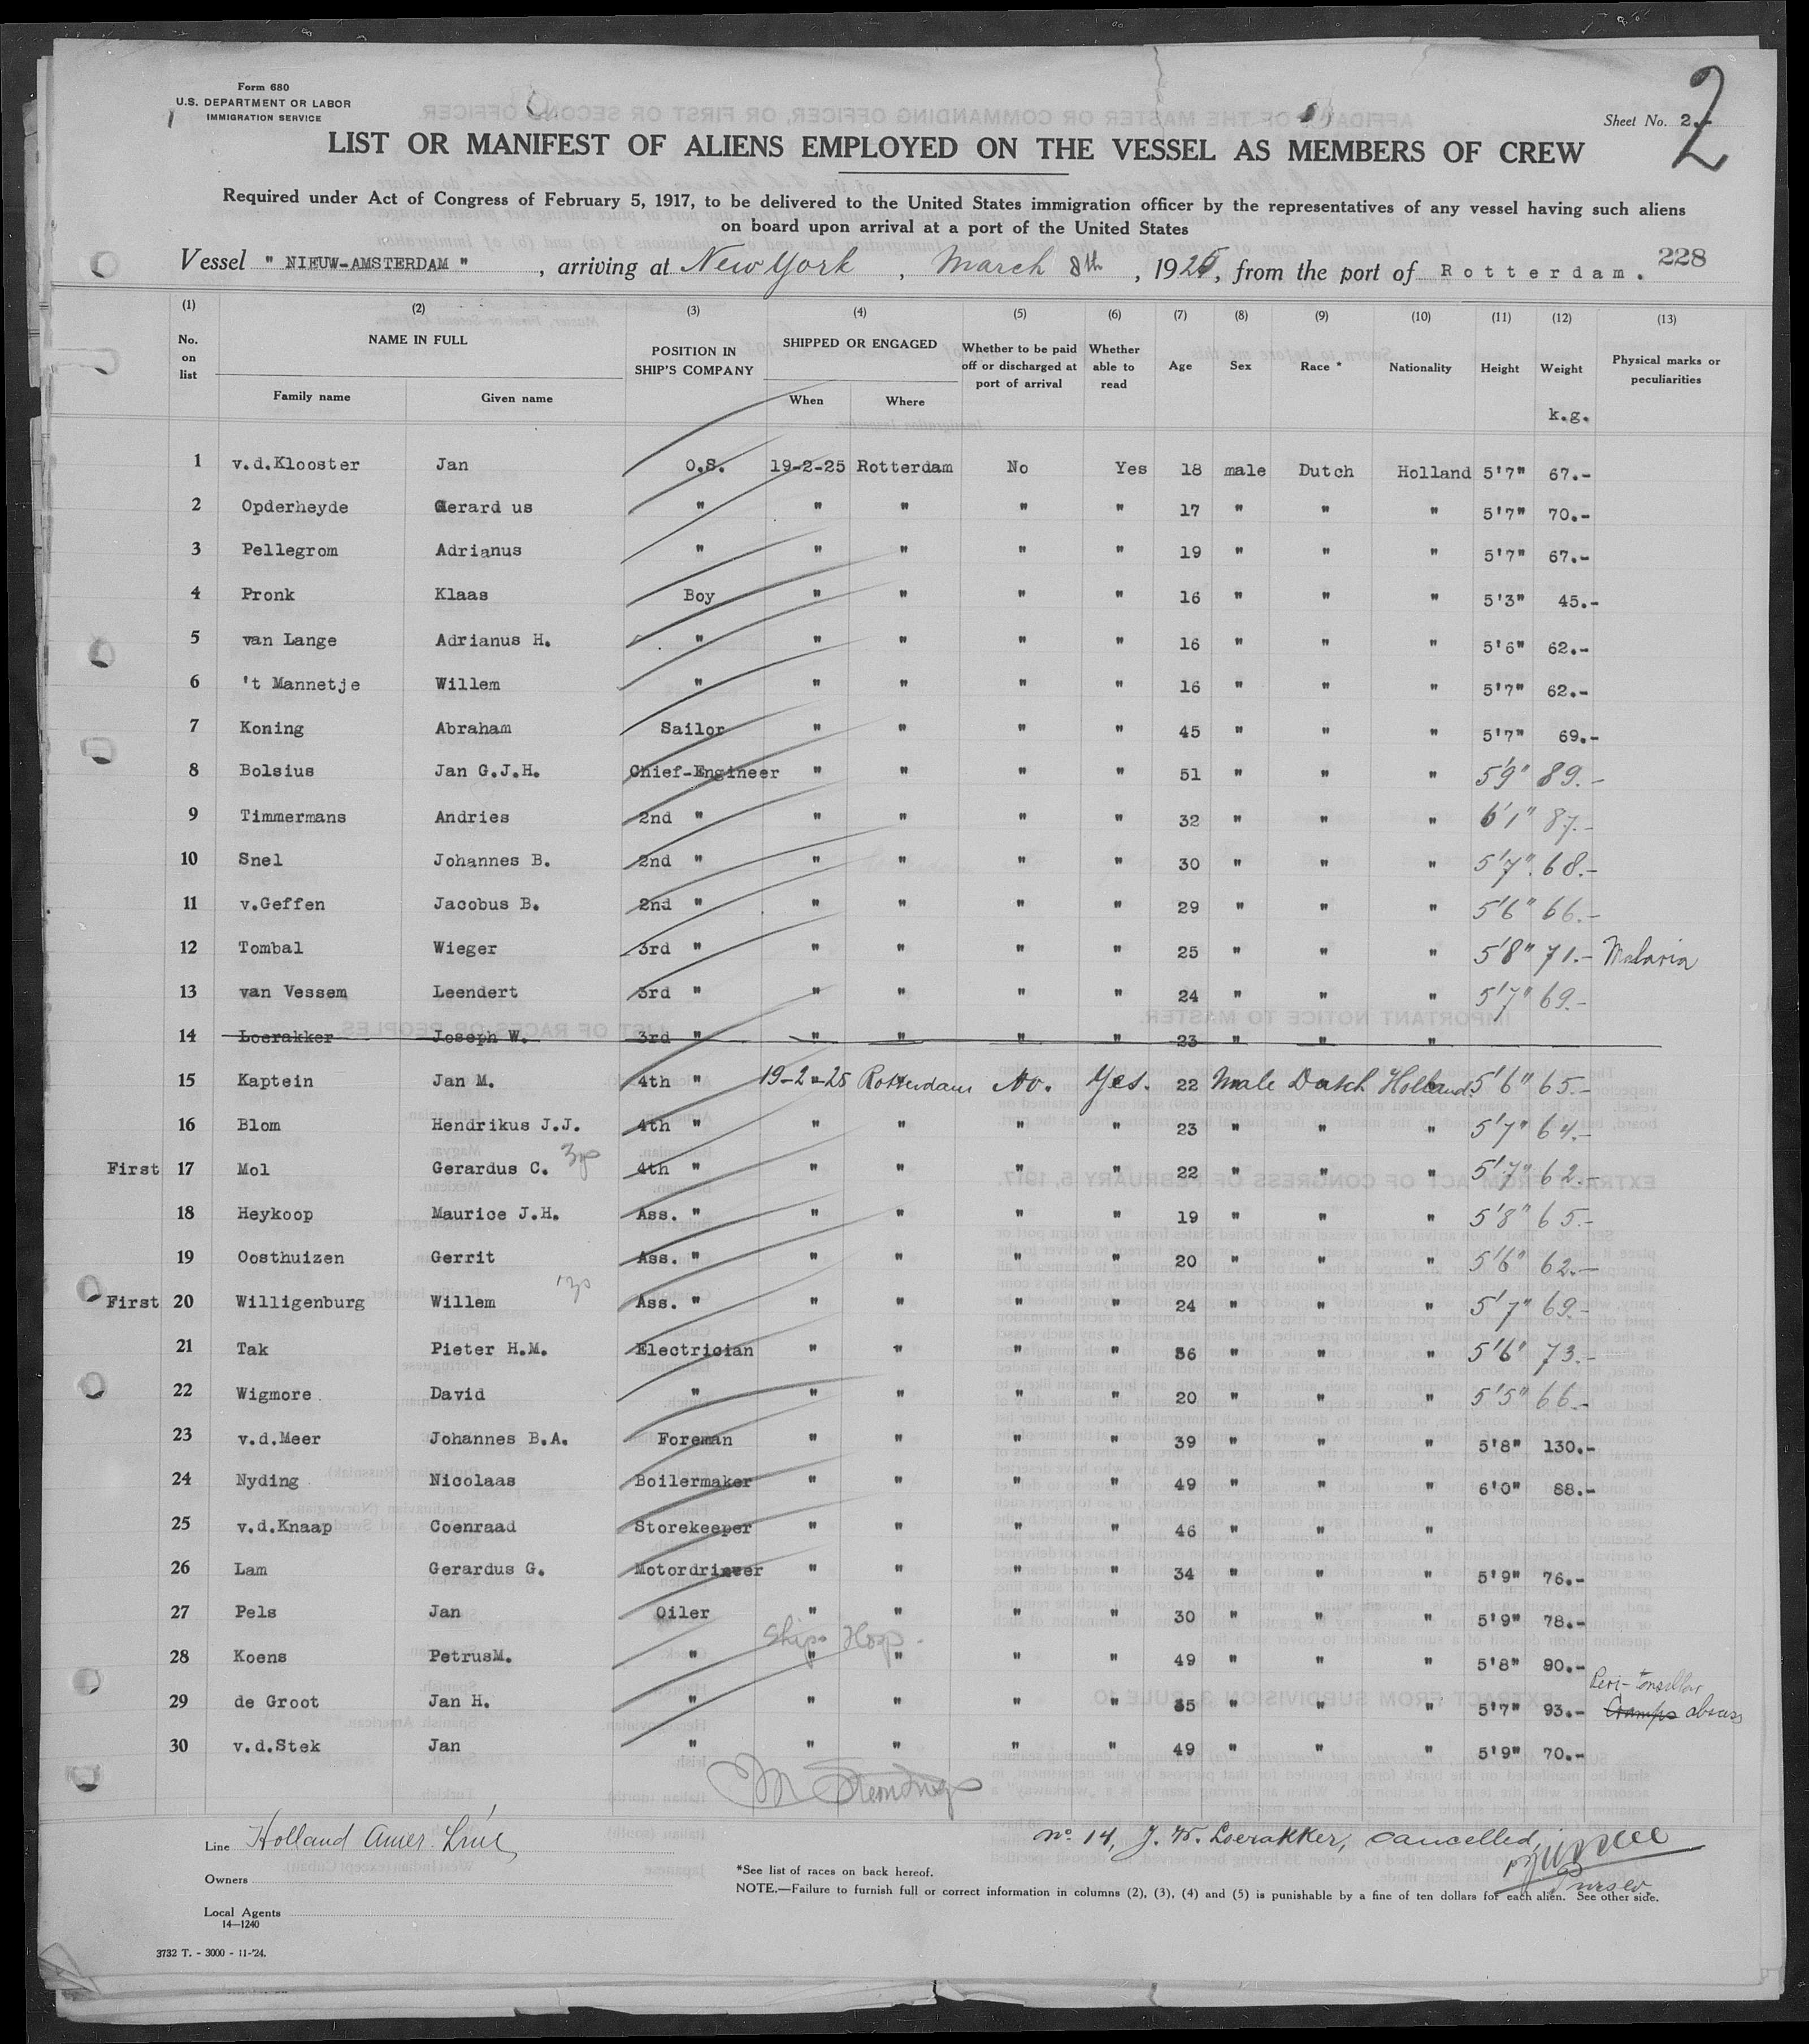 Form 680
U.S. DEPARTMENT OR LABOR
IMMIGRATION SERVICE
Sheet No. 2.-
2
LIST OR MANIFEST OF ALIENS EMPLOYED ON THE VESSEL AS MEMBERS OF CREW
Required under Act of Congress of February 5, 1917, to be delivered to the United States immigration officer by the representatives of any vessel having such aliens
on board upon arrival at a port of the United States
Vessel " NIEUW-AMSTERDAM ", arriving at New York, March 8th, 1925, from the port of Rotterdam. 228
(1) (2) (3) (4) (5) (6) (7) (8) (9) (10) (11) (12) (13)
No. on list NAME IN FULL Family name Given name POSITION IN SHIP'S COMPANY SHIPPED OR ENGAGED When Where Whether to be paid off or discharged at port of arrival Whether able to read Age Sex Race * Nationality Height Weight k.g. Physical marks or peculiarities
1 v.d.Klooster Jan O.S. 19-2-25 Rotterdam No Yes 18 male Dutch Holland 5'7" 67.-
2 Opderheyde Gerard us " " " " " 17 " " " 5'7" 70.-
3 Pellegrom Adrianus " " " " " 19 " " " 5'7" 67.-
4 Pronk Klaas Boy " " " " 16 " " " 5'3" 45.-
5 van Lange Adrianus H. " " " " " 16 " " " 5'6" 62.-
6 't Mannetje Willem " " " " " 16 " " " 5'7" 62.-
7 Koning Abraham Sailor " " " " 45 " " " 5'7" 69.-
8 Bolsius Jan G.J.H. Chief-Engineer " " " " 51 " " " 5'9" 89.-
9 Timmermans Andries 2nd " " " " " 32 " " " 6'1" 87.-
10 Snel Johannes B. 2nd " " " " " 30 " " " 5'7". 68.-
11 v.Geffen Jacobus B. 2nd " " " " " 29 " " " 5'6" 66.-
12 Tombal Wieger 3rd " " " " " 25 " " " 5'8" 71.- Malaria
13 van Vessem Leendert 3rd " " " " " 24 " " " 5'7" 69.-
14 Loerakker Joseph W. 3rd " " " " " 23 " " "
15 Kaptein Jan M. 4th " 19-2-25 Rotterdam No. Yes. 22 Male Dutch Holland 5'6" 65.-
16 Blom Hendrikus J.J. 4th " " " " " 23 " " " 5'7" 64.-
First 17 Mol Gerardus C. 4th " " " " " 22 " " " 5'7" 62.-
18 Heykoop Maurice J.H. Ass. " " " " " 19 " " " 5'8" 65.-
19 Oosthuizen Gerrit Ass. " " " " " 20 " " " 5'6" 62.-
First 20 Willigenburg Willem Ass. " " " " " 24 " " " 5'7" 69.-
21 Tak Pieter H.M. Electrician " " " " 36 " " " 5'6" 73.-
22 Wigmore David " " " " " 20 " " " 5'5" 66.-
23 v.d.Meer Johannes B.A. Foreman " " " " 39 " " " 5'8" 130.-
24 Nyding Nicolaas Boilermaker " " " " 49 " " " 6'0" 88.-
25 v.d.Knaap Coenraad Storekeeper " " " " 46 " " "
26 Lam Gerardus G. Motordriever " " " " 34 " " " 5'9" 76.-
27 Pels Jan Oiler " " " " 30 " " " 5'9" 78.-
Ships Hosp.
28 Koens PetrusM. " " " " " 49 " " " 5'8" 90.-
29 de Groot Jan H. " " " " " 35 " " " 5'7" 93.- Peri-tonsillar Cramps abcess
30 v.d.Stek Jan " " " " " 49 " " " 5'9" 70.-
Line Holland Amer. Line
no 14, J. W. Loerakker, cancelled,
Purser
Owners
*See list of races on back hereof.
NOTE.—Failure to furnish full or correct information in columns (2), (3), (4) and (5) is punishable by a fine of ten dollars for each alien. See other side.
Local Agents
14—1240
3732 T. - 3000 - 11-'24.